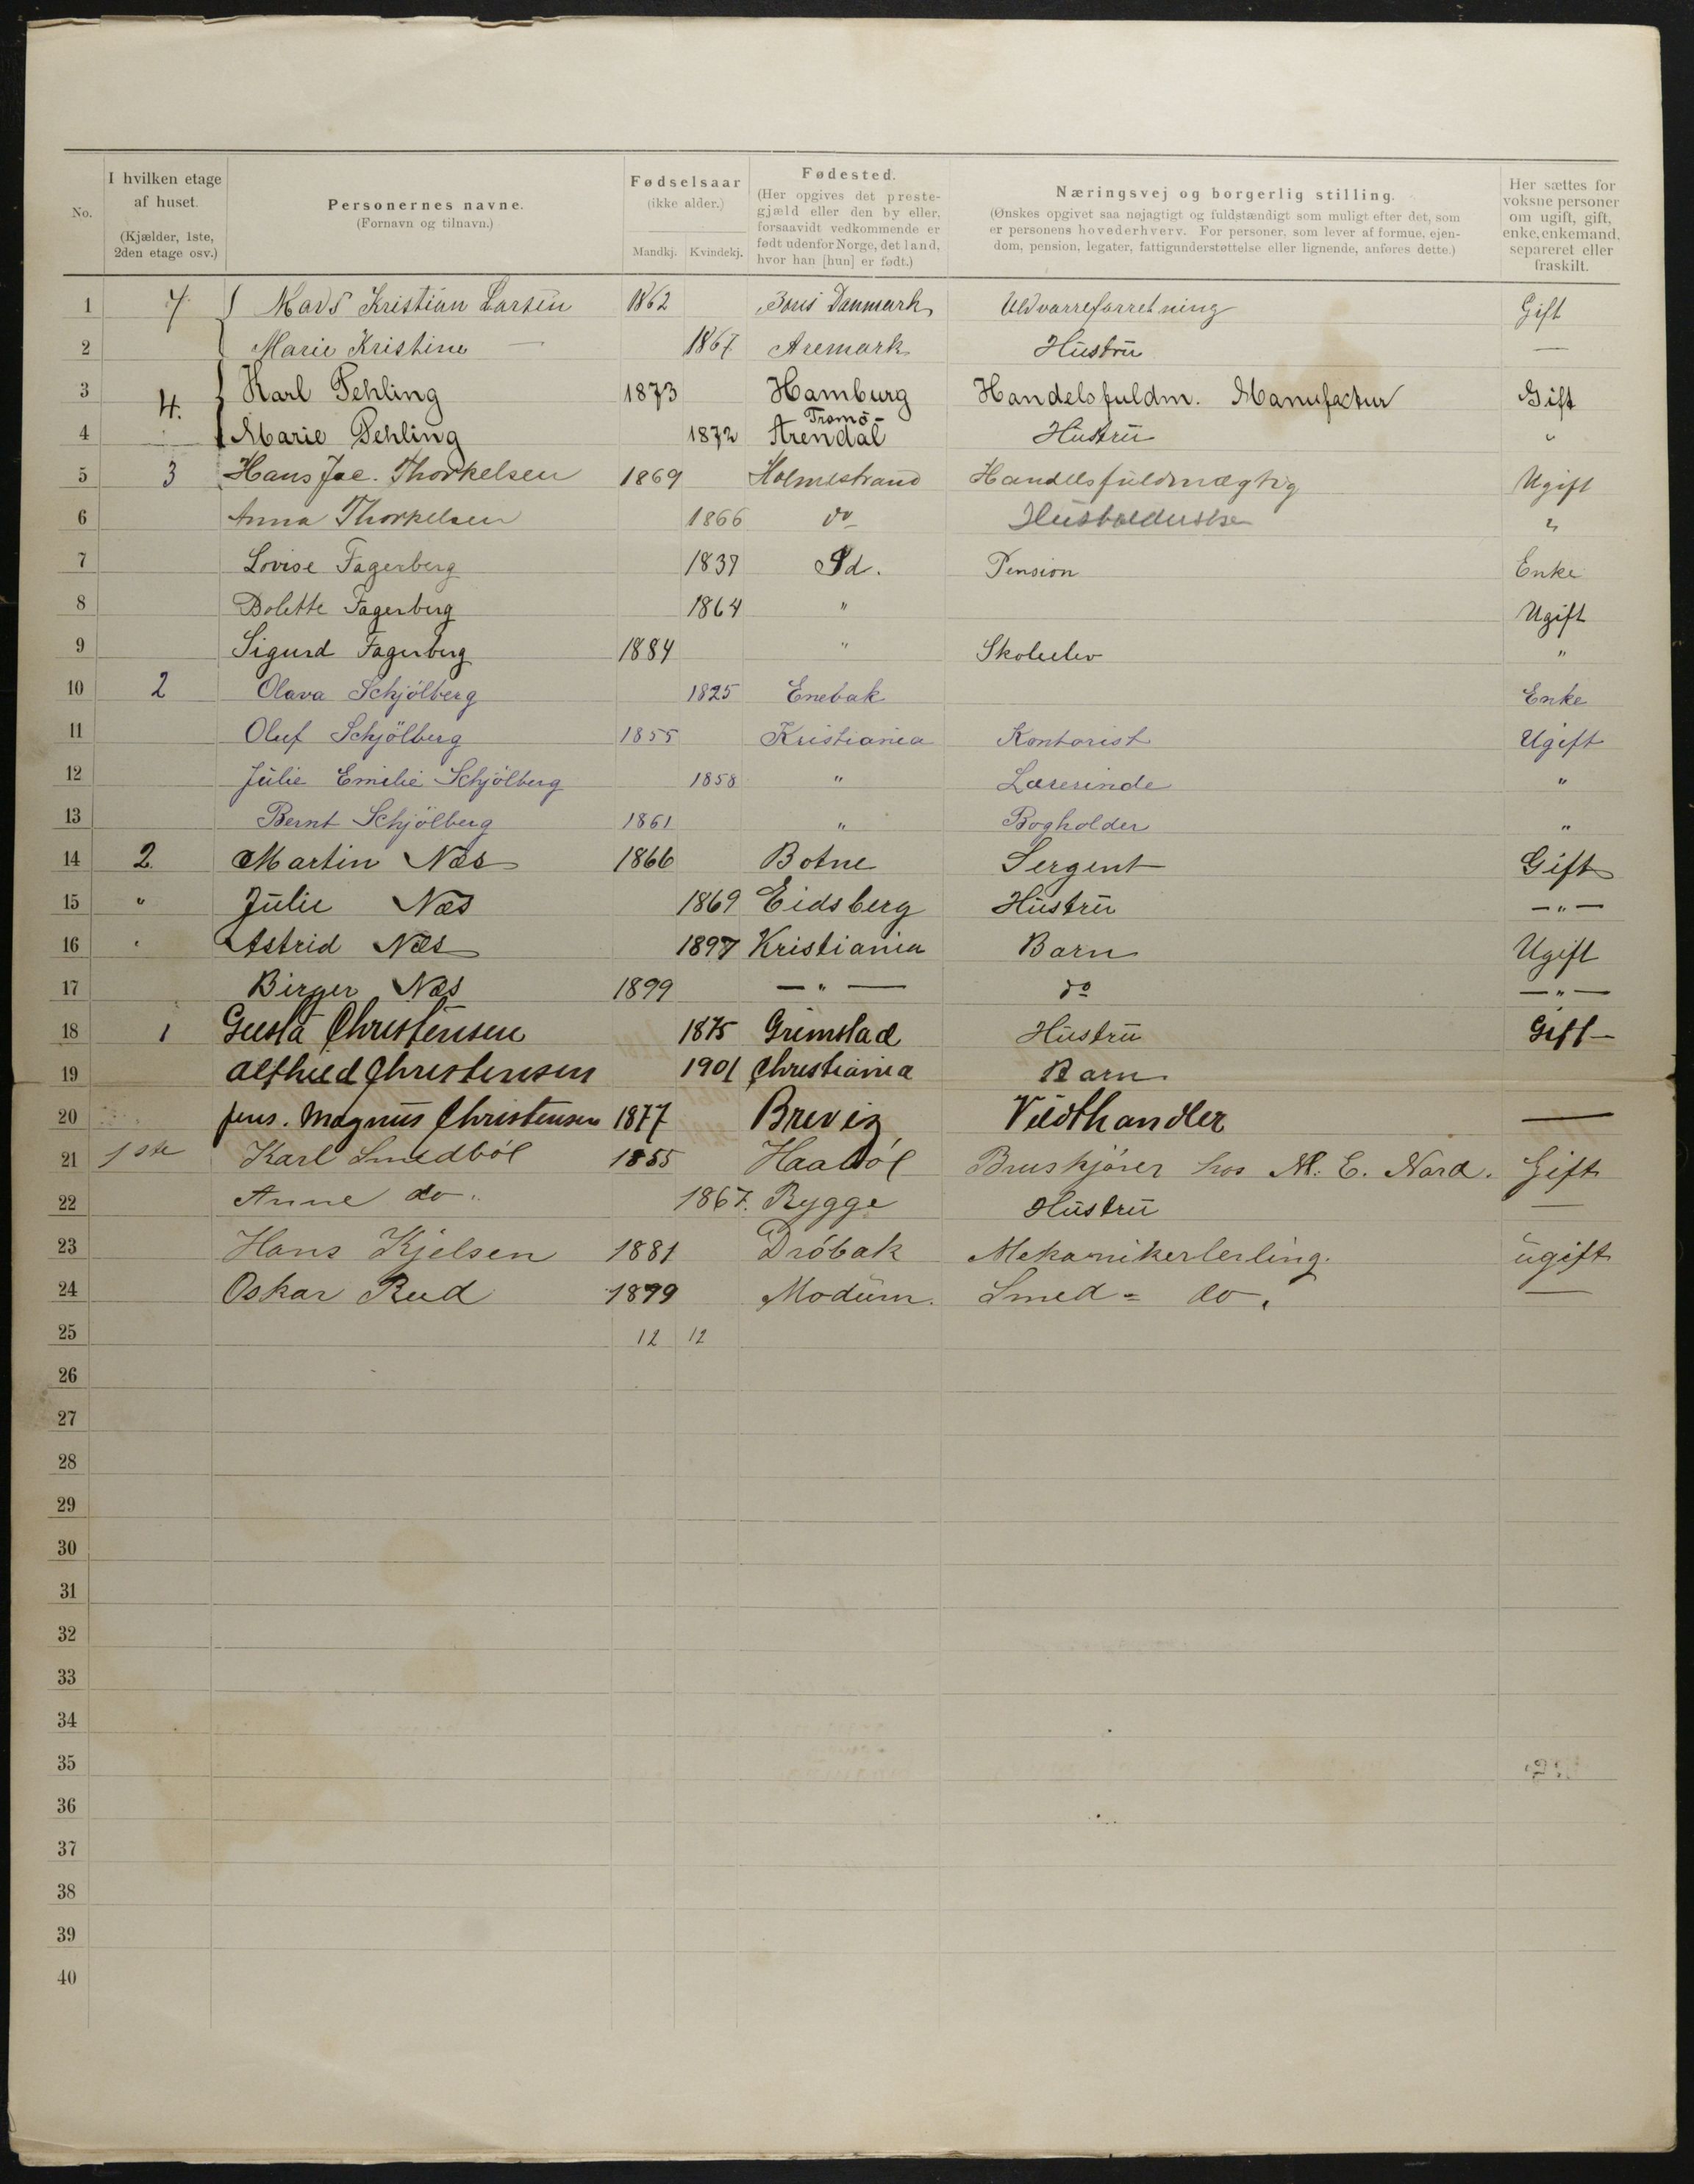 No.
I hvilken etage af huset.
(Kjælder, 1ste, 2den etage osv.)
Personernes navne.
(Fornavn og tilnavn.)
Fødselsaar
(ikke alder.)
Mandkj. Kvindekj.
Fødested.
(Her opgives det prestegjæld eller den by eller, forsaavidt vedkommende er født udenfor Norge, det land, hvor han [hun] er født.)
Næringsvej og borgerlig stilling.
(Ønskes opgivet saa nøjagtigt og fuldstændigt som muligt efter det, som er personens hovederhverv. For personer, som lever af formue, ejendom, pension, legater, fattigunderstøttelse eller lignende, anføres dette.)
Her sættes for voksne personer om ugift, gift, enke, enkemand, separeret eller fraskilt.
1 4 Mads Kristian Larsen 1862 Danmark Uldvarreforretning Gift
2 Marie Kristine — 1867 Aremark Hustru —
3 4. Karl Pehling 1873 Hamburg Handelsfuldm. Manufactur Gift
4 Marie Pehling 1872 Tromö- Arendal Hustru "
5 3 Hans Jac. Thorkelsen 1869 Holmestrand Handelsfuldmægtig Ugift
6 Anna Thorkelsen 1866 do Husholderske "
7 Lovise Fagerberg 1837 Id. Pension Enke
8 Bolette Fagerberg 1864 " Ugift
9 Sigurd Fagerberg 1884 " Skoleelev "
10 2 Olava Schjölberg 1825 Enebak Enke
11 Oluf Schjölberg 1855 Kristiania Kontorist Ugift
12 Julie Emilie Schjölberg 1858 " Lærerinde "
13 Bernt Schjölberg 1861 " Bogholder "
14 2 Martin Næs 1866 Botne Sergent Gift
15 " Julie Næs 1869 Eidsberg Hustru — " —
16 " Astrid Næs 1897 Kristiania Barn Ugift
17 Birger Næs 1899 — " — do — " —
18 1 Gusta Christensen 1875 Grimstad Hustru Gift
19 Alfhild Christensen 1901 Christiania Barn
20 Jens. Magnus Christensen 1877 Brevig Vedthandler —
21 1ste Karl Smedböl 1855 Haaböl Bruskjörer hos M. E. Nord. Gift
22 Anne do. 1867. Rygge Hustru —
23 Hans Kjelsen 1881 Dröbak Mekanikerlerling. ugift
24 Oskar Rud 1899 Modum. Smed = do. —
25 12 12
26
27
28
29
30
31
32
33
34
35
36
37
38
39
40